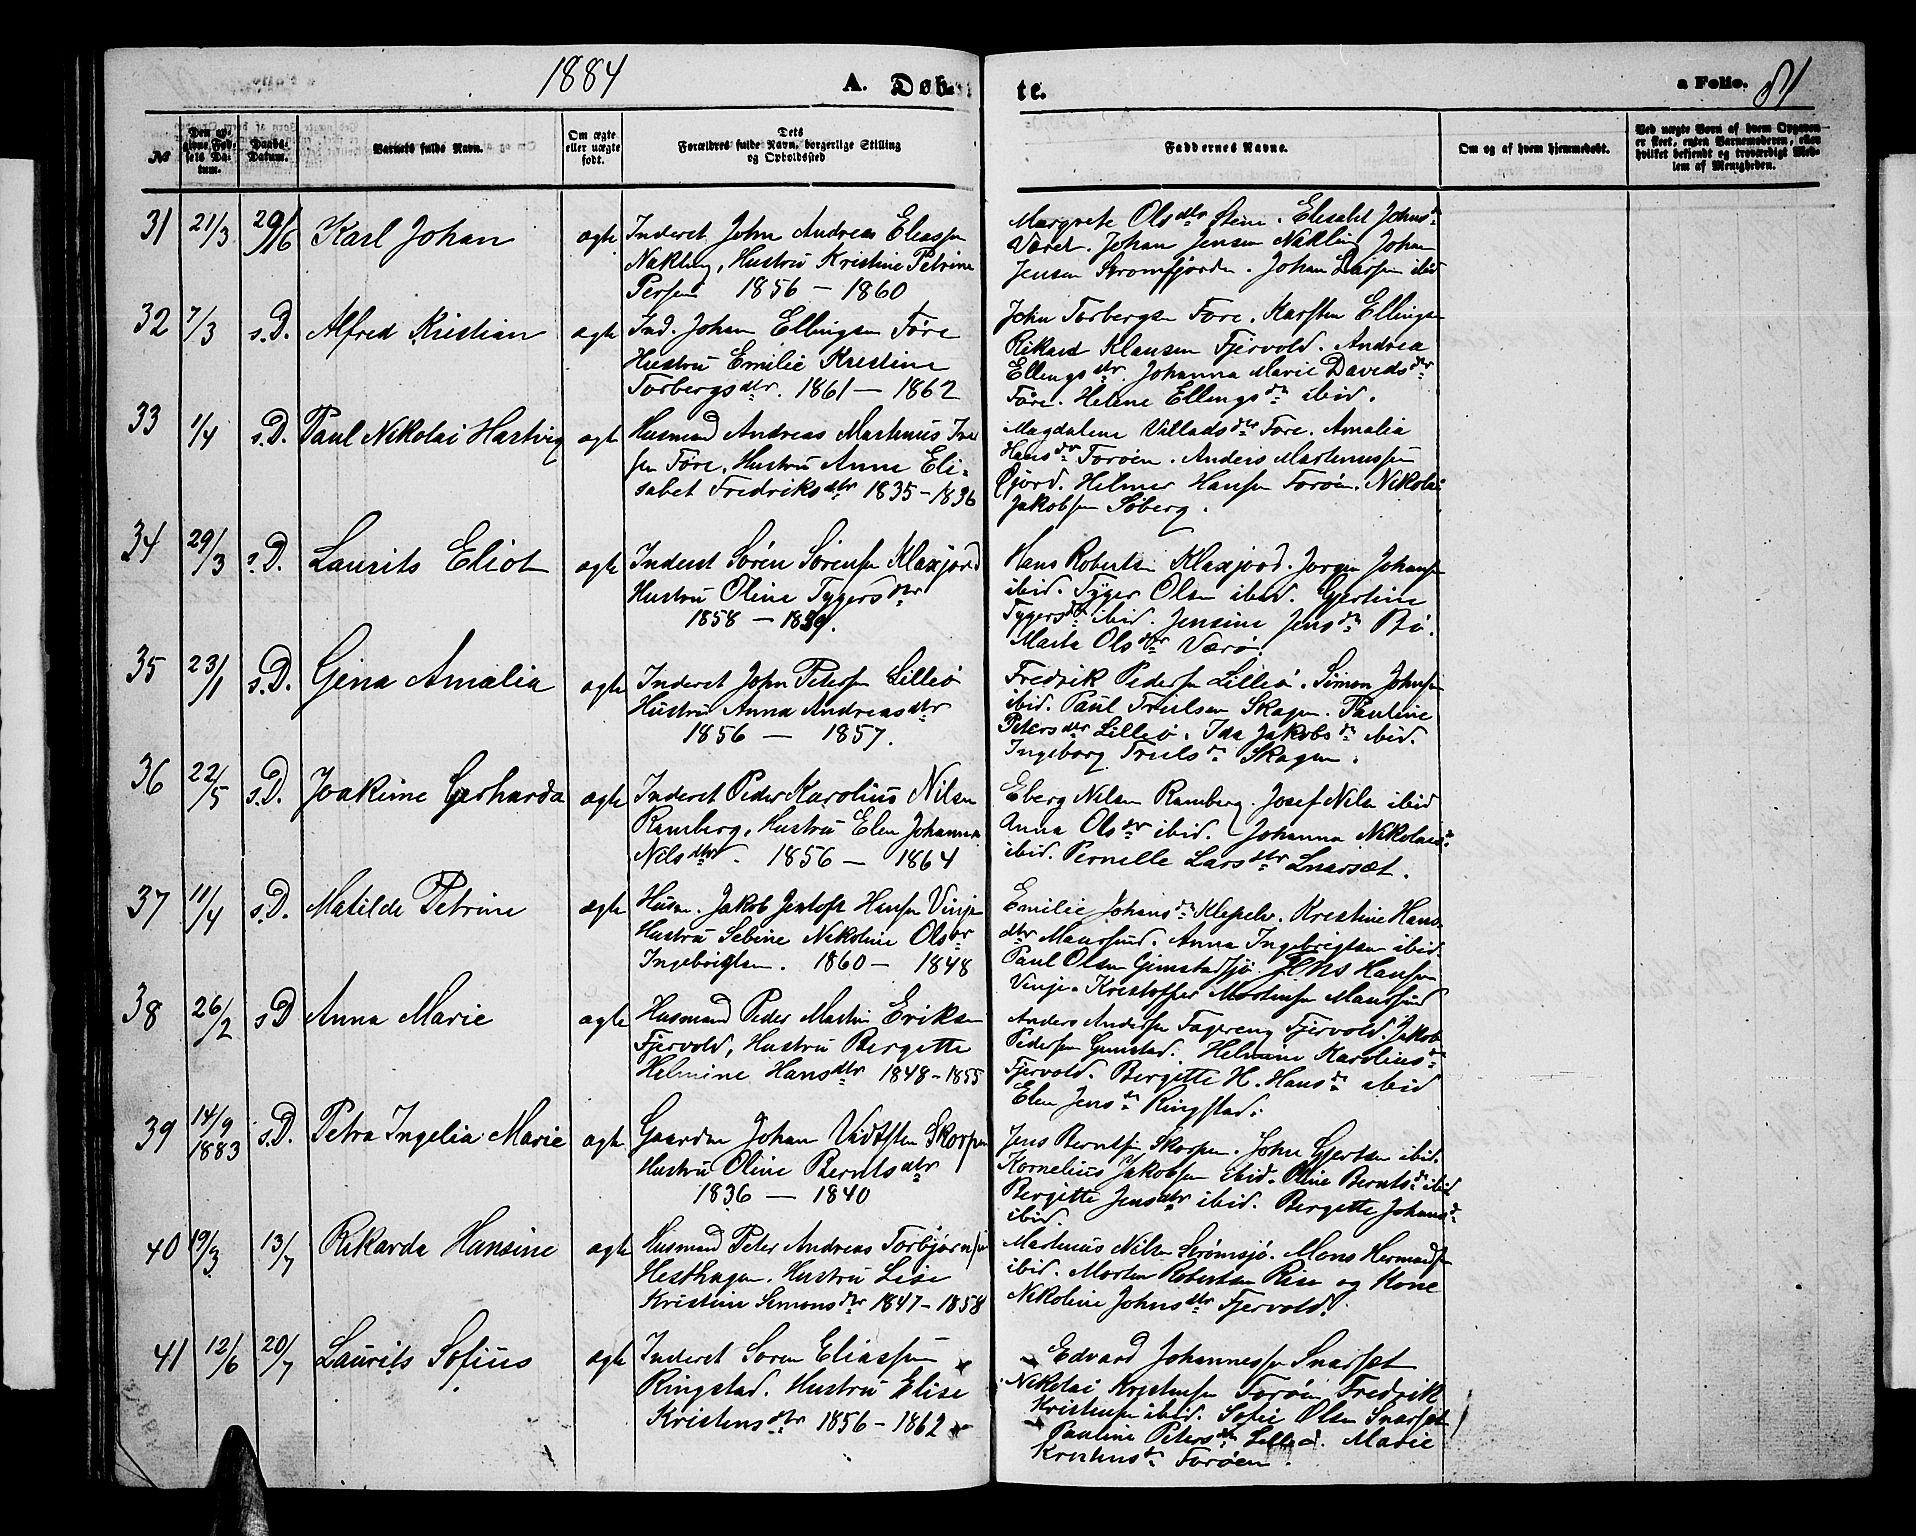 1884 A. Døbte. a Folio. 81
№ Den opgivne Fødsels Datum. Daabs-Datum. Barnets fulde Navn. Om ægte eller uægte født. Dets Forældres fulde Navn, borgerlige Stilling og Opholdssted Faddernes Navne. Om og af hvem hjemmedøbt. Ved uægte Børn af hvem Opgaven er skeet, enten Barnemoderen, eller hvilket bekjendt og troværdigt Medlem af Menigheden.
31 21/3 29/6 Karl Johan ægte Inderst John Andreas Eliassen
Nakling, Hustru Kristine Petrine
Persen 1856 - 1860
Margrete Olsdtr Steine. Elisabet Johnsd
Været. Johan Jensen Nakling Johan
Jensen Straumfjorden. Johan Larsen ibid
32 7/3 s.D. Alfred Kristian ægte Ind. Johan Ellingsen Føre
Hustru Emilie Kristine
Torbergsdtr. 1861 - 1862
John Torbergsen Føre. Karsten Ellingsen
Rikard Klausen Fjervold. Andrea
Ellingsdtr. Johanna Marie Davidsdtr
Føre. Helene Ellingsdtr ibid.
33 1/4 s.D. Paul Nikolai Hartvig ægte Husmand Andreas Martinus
sen Føre, Hustru Anna Eli-
sabet Fredriksdtr 1835 - 1836
Magdalene Villadsdtr Føre. Amalia
Hansdtr Forøen. Anders Martinussen
Gjord. Helmer Hansen Forøen. Nikolai
Jakobsen Søberg.
34 29/3 s.D. Laurits Eliot ægte Inderst Sören Sörensen Klaxjord
Hustru Oline Tygersdtr
1858 - 1859.
Hans Robertsen Klaxjord. Jørgen Johansen
ibid. Tyger Olsen ibid. Gjertine
Tygersdtr ibid. Jensine Jensdtr Bø.
Marta Olsdtr Værø.
35 23/1 s.D. Gina Amalia ægte Inderst John Petersen Lilleø
Hustru Anna Andreasdtr
1856 - 1857.
Fredrik Pedersen Lilleø. Simon Johnsen
ibid. Paul Trulsen Skagen. Pauline
Petersdtr Lilleø. Ida Jakobsdtr ibid.
Ingeborg Trulsdtr Skagen.
36 22/5 s.D. Joakime Gerharda ægte Inderst Peder Karolius Nilsen
Ramberg, Hustru Elen Johanna
Nilsdtr. 1856 - 1864
Eberg Nilsen Ramberg. Josef Nilsen ibid
Anna Olsdtr ibid. Johanna Nikolaisd
ibid. Pernille Larsdtr Snarset.
37 11/4 s.D. Matilde Petrine ægte Husm. Jakob Jentoft Hansen Vinje
Hustru Sebine Nikoline Olsdtr
Ingebrigtsen. 1860 - 1848
Emilie Johansdtr Klepelv. Kristine Hans
dtr Maursund. Anna Ingebrigtsen ibid.
Paul Olsen Gimstadsjø. Jens Hansen
Vinje. Kristoffer Mortensen Maursund
38 26/2 s.D Anna Marie ægte Husmand Peder Martin Eriksen
Fjervold, Hustru Bergitte
Helmine Hansdtr 1848 - 1855
Anders Andersen Fagereng Fjervold. Jakob
Pedersen Gimstad. Helmine Karoliusd
Fjervold. Bergitte H. Hansdtr ibid
Elen Jensdtr Ringstad.
39 14/9 1883 s.D. Petra Ingelia Marie ægte Gaardm Johan Vidtsten Skorpen
Hustru Oline Berntsdtr
1836 - 1840
Jens Berntsen Skorpen. John Gjertsen ibid.
Kornelius Jakobsen ibid. Oline Berntsd ibid
Bergitte Jensdtr ibid. Bergette Johansd
ibid.
40 19/3 13/7 Rikarda Hansine ægte Husmand Peter Andreas Torbjørnsen
Hesthagen. Hustru Lise
Kristine Simonsdtr 1847 - 1858
Martinus Nilsen Strømsjø. Mons Hermansen
ibid. Morten Robertsen Risø og Kone
Nikoline Johnsdtr Fjervold.
41 12/6 20/7 Laurits Sofius ægte Inderst Sören Eliassen
Ringstad. Hustru Elise
Kristensdtr 1856 - 1862
Edvard Johannessen Snarset
Nikolai Kristensen Forøen Fredrik
Kristensen ibid. Sofie Olsen Snarset
Pauline Petersdtr Lilleø. Marie
Kristensdtr Forøen.